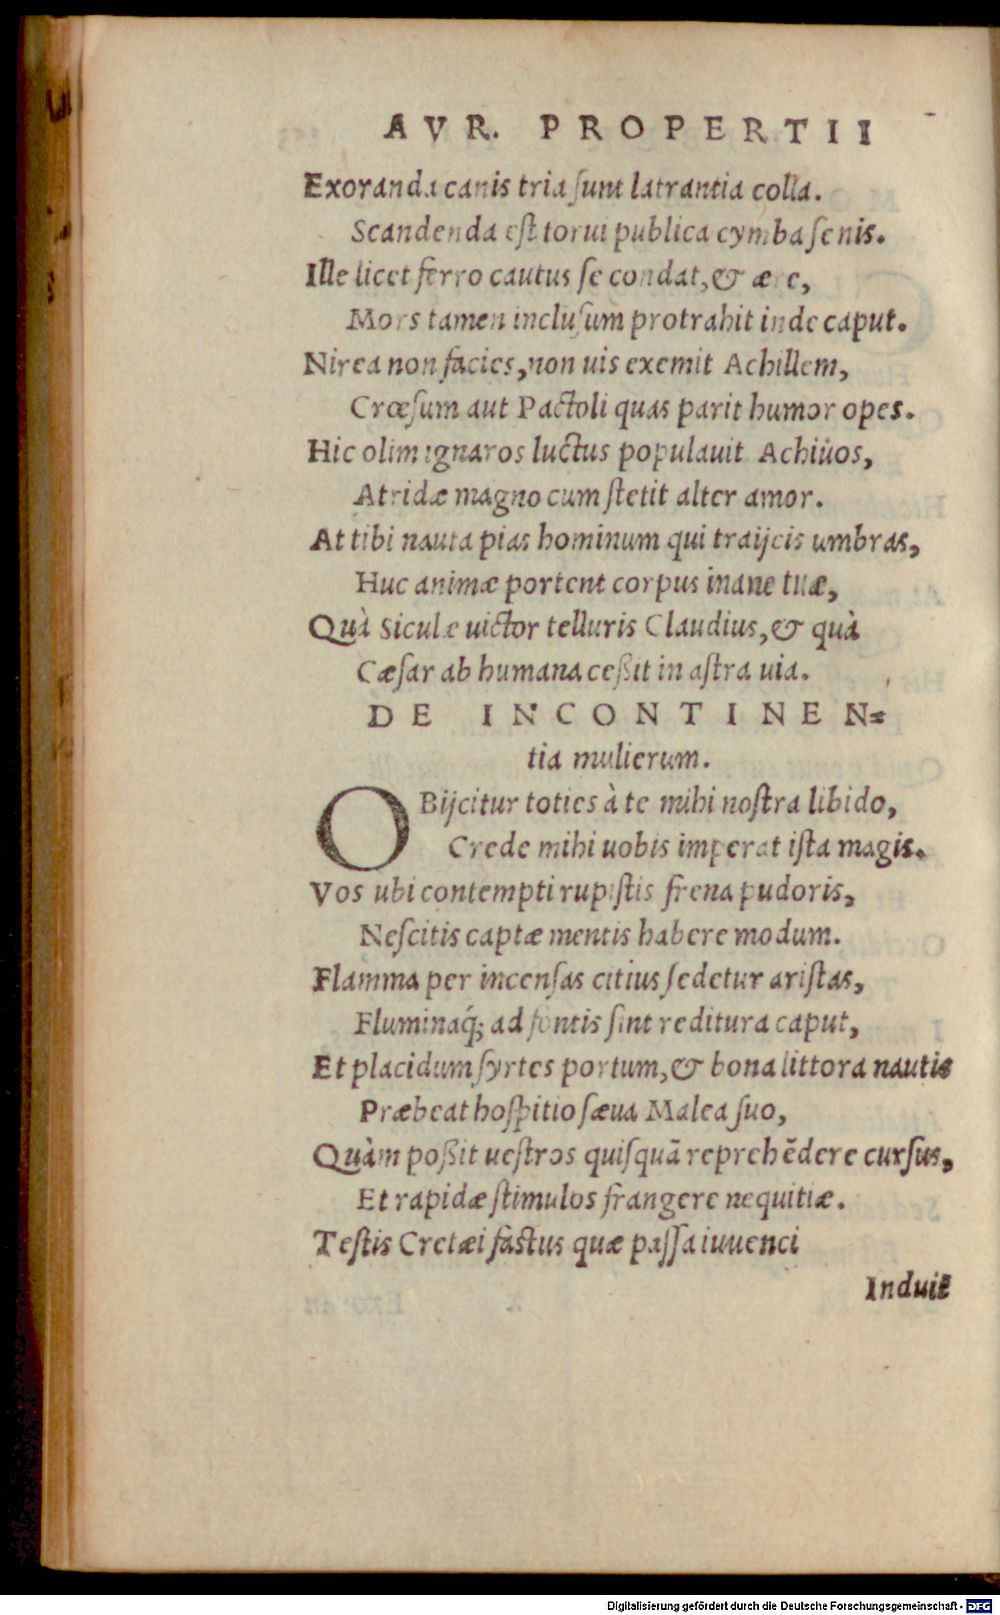 AVR. PROPERTII
Exoranda canis tria ſunt latrantia colla.
Scandenda eſt torui publica cymba ſenis.
Ille licet ferro cautus ſe condat, & ære,
Mors tamen incluſum protrahit inde caput.
Nirea non facies, non uis exemit Achillem,
Crœſum aut Pactoli quas parit humor opes.
Hic olim ignaros luctus populauit Achiûos,
Atridæ magno cum ſtetit alter amor.
At tibi nauta pias hominum qui traijcis umbras,
Huc animæ portent corpus inane tuæ,
Quà Siculæ uictor telluris Claudius, & quà
Cæſar ab humana ceßit in aſtra uia.
DE INCONTINEN-
tia mulierum.
OBijcitur toties à te mihi noſtra libido,
Crede mihi uobis imperat iſta magis.
Vos ubi contempti rupiſtis frena pudoris,
Neſcitis captæ mentis habere modum.
Flamma per incenſas citius ſedetur ariſtas,
Fluminaq́; ad fontis ſint reditura caput,
Et placidum ſyrtes portum, & bona littora nautis
Præbeat hoſpitio ſæua Malea ſuo,
Quàm poßit ueſtros quiſquā reprehēdere curſus,
Et rapidæ ſtimulos frangere nequitiæ.
Teſtis Cretæi faſtus quæ paſſa iuuenci
Induit
Digitalisierung gefördert durch die Deutsche Forschungsgemeinschaft - DFG